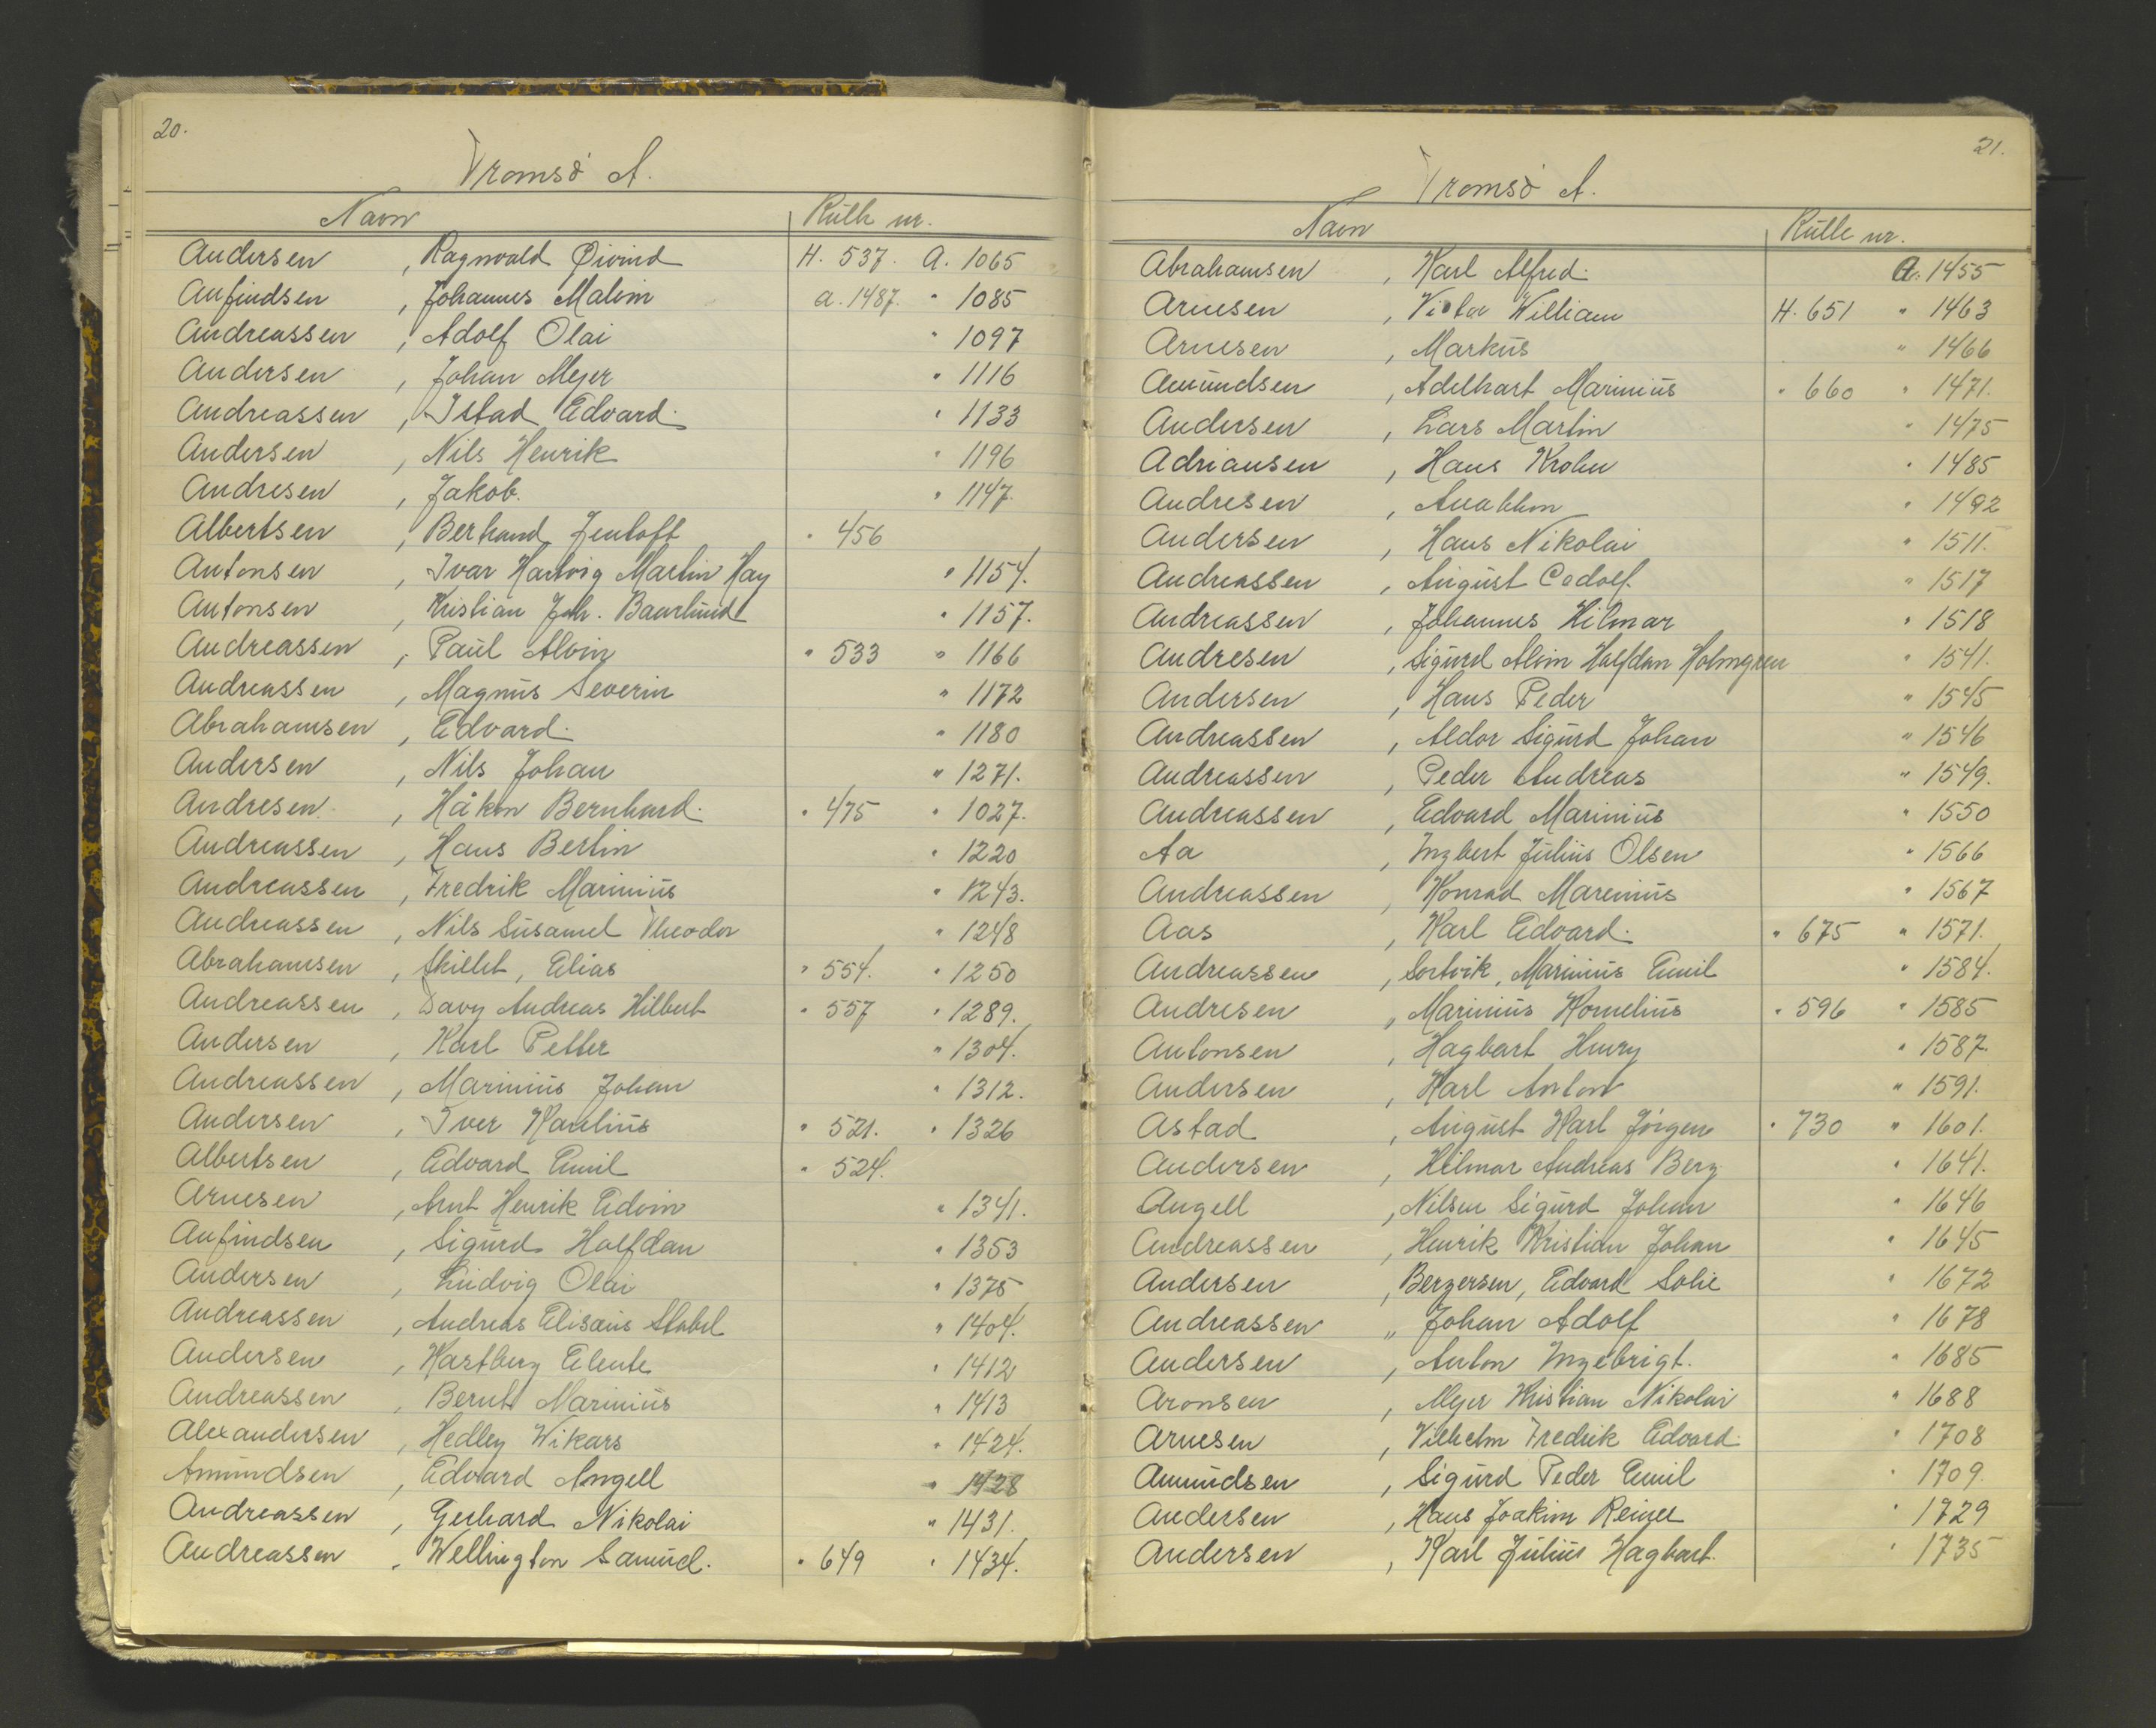 20.
Tromsø A.
Navn Rulle nr.
Andersen, Ragnvald Øivind H. 537. A. 1065
Anfindsen, Johannes Malvin a. 1487. " 1085
Andreassen, Adolf Olai " 1097
Andersen, Johan Meyer " 1116
Andreassen, Istad Edvard. " 1133
Andersen, Nils Henrik " 1196
Andresen, Jakob. " 1147.
Albertsen, Berhand Jentoft " 456
Antonsen, Ivar Hartvig Martin Hay " 1154.
Antonsen, Kristian Joh. Baarlund " 1157.
Andreassen, Paul Alvin " 533 " 1166
Andreassen, Magnus Severin " 1172
Abrahamsen, Edvard. " 1180
Andersen, Nils Johan " 1271.
Andresen, Håkon Bernhard. " 475 " 1027.
Andreassen, Hans Bertin " 1220
Andreassen, Fredrik Marinius " 1243.
Andreassen, Nils Susamel Theodor " 1248
Abrahamsen, Skillet, Elias " 554. " 1250
Andreassen, Davy Andreas Hilbert " 557 " 1289.
Andersen, Karl Petter " 1304.
Andreassen, Marinius Johan " 1312.
Andersen, Iver Paulius " 521. " 1326
Albertsen, Edvard Emil " 524.
Arnesen, Arnt Henrik Edvin " 1341.
Anfindsen, Sigurd Halfdan " 1353
Andersen, Ludvig Olai " 1375
Andreassen, Andreas Elisæus Stabel " 1404.
Andersen, Hartberg " 1412
Andreassen, Bernt Marinius " 1413
Alexandersen, Hedley Wikars " 1424.
Amundsen, Edvard Angell " 1428
Andreassen, Gerhard Nikolai " 1431.
Andreassen, Wellington Samuel. " 649 " 1434.
21.
Tromsø A.
Navn Rulle nr.
Abrahamsen, Karl Alfred. A. 1455
Arnesen, Victor William H. 651 " 1463
Arnesen, Markus " 1466
Amundsen, Adelhart Marinius " 660 " 1471.
Andersen, Lars Martin " 1475
Adriansen, Hans Krohn " 1485
Andresen, " 1492
Andersen, Hans Nikolai " 1511.
Andreassen, August Codolf. " 1517
Andreassen, Johannes Hilmar " 1518
Andresen, Sigurd Alvin Halfdan Holmgren " 1541.
Andersen, Hans Peder " 1545
Andreassen, Aldor Sigurd Johan " 1546
Andreassen, Peder Andreas " 1549.
Andreassen, Edvard Marinius " 1550
Aa, Ingbert Julius Olsen " 1566
Andreassen, Konrad Marenius " 1567
Aas, Karl Edvard. " 675 " 1571.
Andreassen, Sortvik, Marinius Emil " 1584.
Andresen, Marinius Kornelius " 596 " 1585
Antonsen, Hagbart Henry " 1587.
Andersen, Karl Anton " 1591.
Astad, August Karl Jörgen " 730 " 1601.
Andersen, Hilmar Andreas Berg " 1641.
Angell, Nilsen Sigurd Johan " 1646
Andreassen, Henrik Kristian Johan " 1645
Andersen, Bergersen, Edvard Solie " 1672
Andreassen, Johan Adolf " 1678
Andersen, Anton Ingebrigt. " 1685
Aronsen, Meyer Kristian Nikolai " 1688
Arnesen, Vilhelm Fredrik Edvard. " 1708
Amundsen, Sigurd Peder Emil " 1709.
Andersen, Hans Joakim " 1729
Andersen, Karl Julius Hagbart. " 1735